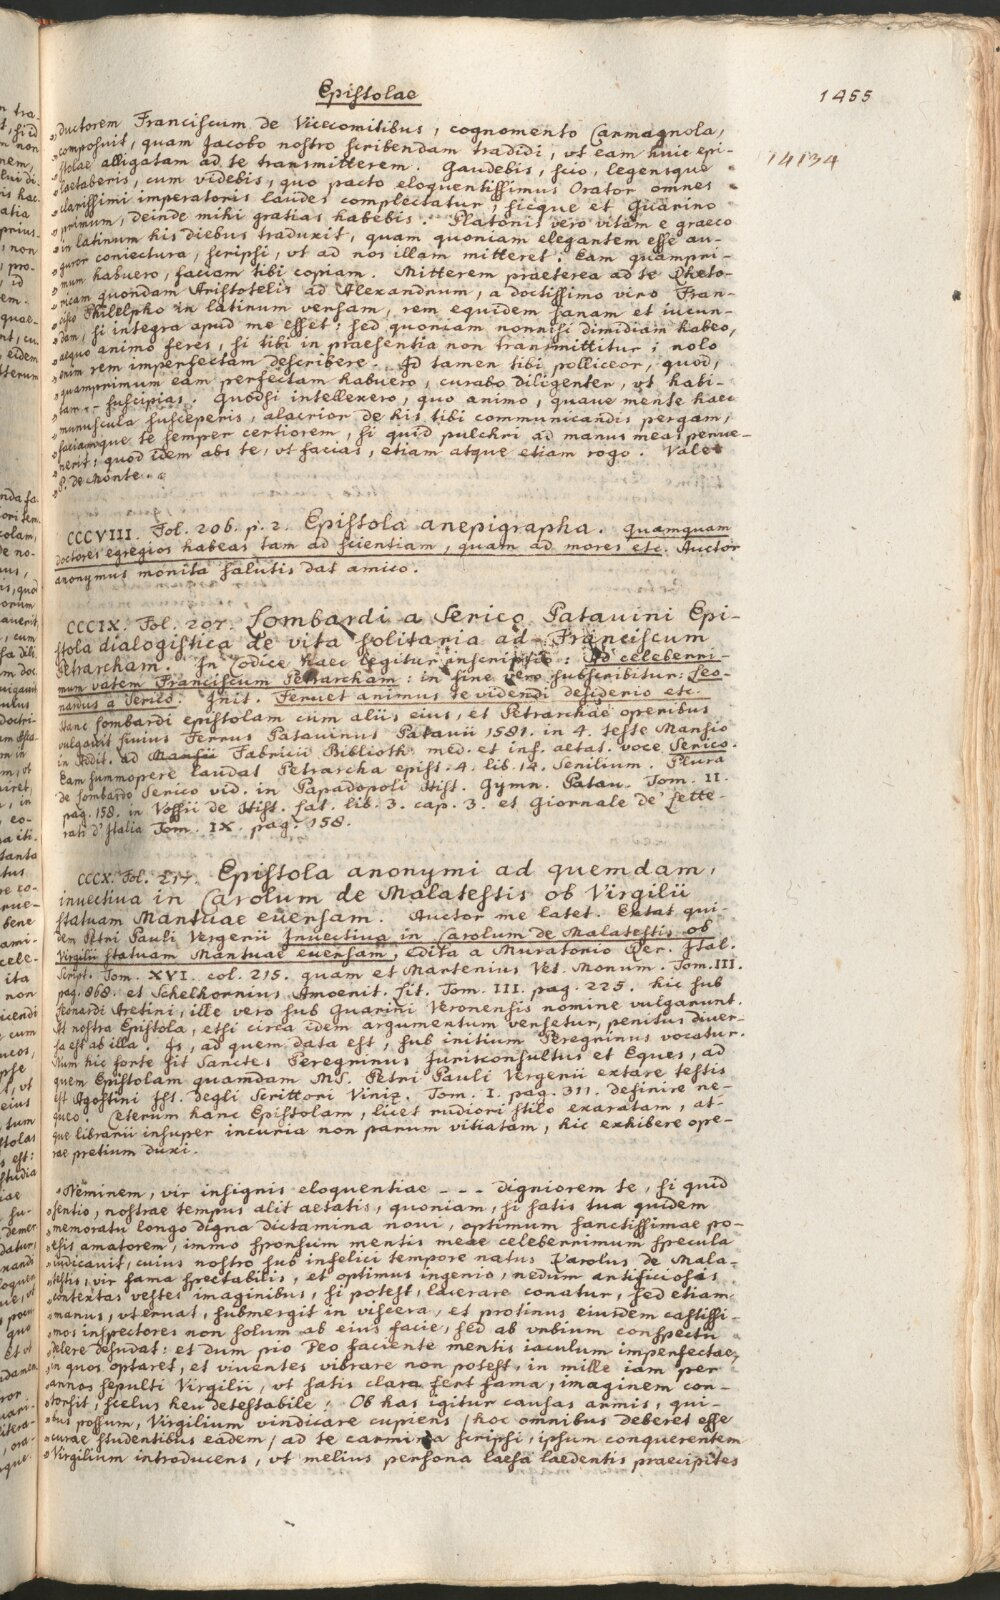 Epistolae
1455
14134
„ductorem Franciscum de Vicecomitibus, cognomento Carmagnola,
„composuit, quam Jacobo nostro scribendam tradidi, vt eam huic epi-
„stolae alligatam ad te transmitterem. Gaudebis, scio, legensque
„laetaberis, cum videbis, quo pacto eloquentissimus Orator omnes
„clarissimi imperatoris laudes complectatur; sicque et Guarino
„primum, deinde mihi gratias habebis. Platonis vero vitam e graeco
„in latinum his diebus traduxit, quam quoniam elegantem esse au-
„guror coniectura, scripsi, vt ad nos illam mitteret. Eam quampri-
„mum habuero, faciam tibi copiam. Mitterem praeterea ad te Rheto-
„ricam quondam Aristotelis ad Alexandrum, a doctissimo viro Fran-
„cisco Philelpho in latinum versam, rem equidem sanam et iucun-
„dam, si integra apud me esset: sed quoniam nonnisi dimidiam habeo,
„aequo animo feres, si tibi in praesentia non transmittitur; nolo
„enim rem imperfectam describere. Id tamen tibi polliceor, quod,
„quamprimum eam perfectam habuero, curabo diligenter, vt habi-
„tam -- suscipias. Quodsi intellexero, quo animo, quaue mente haec
„munuscula susceperis, alacrior de his tibi communicandis pergam,
„faciamque te semper certiorem, si quid pulchri ad manus meas perue-
„nerit: quod idem abs te, vt facias, etiam atque etiam rogo. Vale
„P. de Monte.
CCCVIII. Fol. 206. p. 2. Epistola anepigrapha. Quamquam
doctores egregios habeas tam ad scientiam, quam ad mores etc. Auctor
anonymus monita salutis dat amico.
CCCIX. Fol. 207. Lombardi a Serico Patauini Epi-
stola dialogistica de vita solitaria ad Franciscum
Petrarcham. In Codice haec legitur inscriptio: Ad celeberri-
mum vatem Franciscum Petrarcham: in fine vero subscribitur: Leo-
nardus a Serico. Init. Feruet animus te videndi desiderio etc.
Hanc Lombardi epistolam cum aliis eius, et Petrarchae operibus
vulgauit Liuius Ferrus Patauinus Patauii 1581. in 4. teste Mansio
in Addit. ad Mansii Fabricii Biblioth. med. et inf. aetat. voce Serico.
Eam summopere laudat Petrarcha epist. 4. lib. 14. Senilium. Plura
de Lombardo Serico vid. in Papadopoli Hist. Gymn. Patau. Tom. II.
pag. 158. in Vossii de Hist. Lat. lib. 3. cap. 3. et Giornale de' Lette-
rati d'Italia Tom. IX. pag. 158.
CCCX. Fol. 217. Epistola anonymi ad quemdam,
inuectiua in Carolum de Malatestis ob Virgilii
statuam Mantuae euersam. Auctor me latet. Extat qui-
dem Petri Pauli Vergerii Inuectiua in Carolum de Malatestis ob
Virgilii statuam Mantuae euersam, edita a Muratorio Rer. Ital.
Script. Tom. XVI. col. 215. quam et Martenius Vet. Monum. Tom. III.
pag. 868. et Schelhornius Amoenit. Lit. Tom. III. pag. 225. hic sub
Leonardi Aretini, ille vero sub Guarini Veronensis nomine vulgarunt.
At nostra Epistola, etsi circa idem argumentum versetur, penitus diuer-
sa est ab illa. Is, ad quem data est, sub initium Peregrinus vocatur.
Num hic forte sit Sanctes Peregrinus Jurisconsultus et Eques, ad
quem Epistolam quamdam MS. Petri Pauli Vergerii extare testis
est Agostini Ist. degli Scrittori Viniz. Tom. I. pag. 311. definire ne-
queo. Ceterum hanc Epistolam, licet rudiori stilo exaratam, at-
que librarii insuper incuria non parum vitiatam, hic exhibere ope-
rae pretium duxi.
„Neminem, vir insignis eloquentiae --- digniorem te, si quid
„sentio, nostrae tempus alit aetatis, quoniam, si satis tua quidem
„memoratu longo digna dictamina noui, optimum sanctissimae po-
„esis amatorem, immo sponsum mentis meae celeberrimum specula
„iudicauit, cuius nostro sub infelici tempore natus Carolus de Mala-
„testis, vir fama spectabilis, et optimus ingenio, nedum artificiosas
„contextas vestes imaginibus, si potest, lacerare conatur, sed etiam
„manus, vt eruat, submergit in viscera, et protinus eiusdem castissi-
„mos inspectores non solum ab eius facie, sed ab vrbium conspectu
„delere desudat: et dum pio Deo faciente mentis iaculum imperfectae,
„in quos optaret, et viuentes vibrare non potest, in mille iam per
„annos sepulti Virgilii, vt satis clara fert fama, imaginem con-
„torsit, scelus heu detestabile! Ob has igitur causas armis, qui-
„bus possum, Virgilium vindicare cupiens / hoc omnibus deberet esse
„curae studentibus eadem / ad te carmina scripsi, ipsum conquerentem
„Virgilium introducens, vt melius persona laesa laedentis praecipites